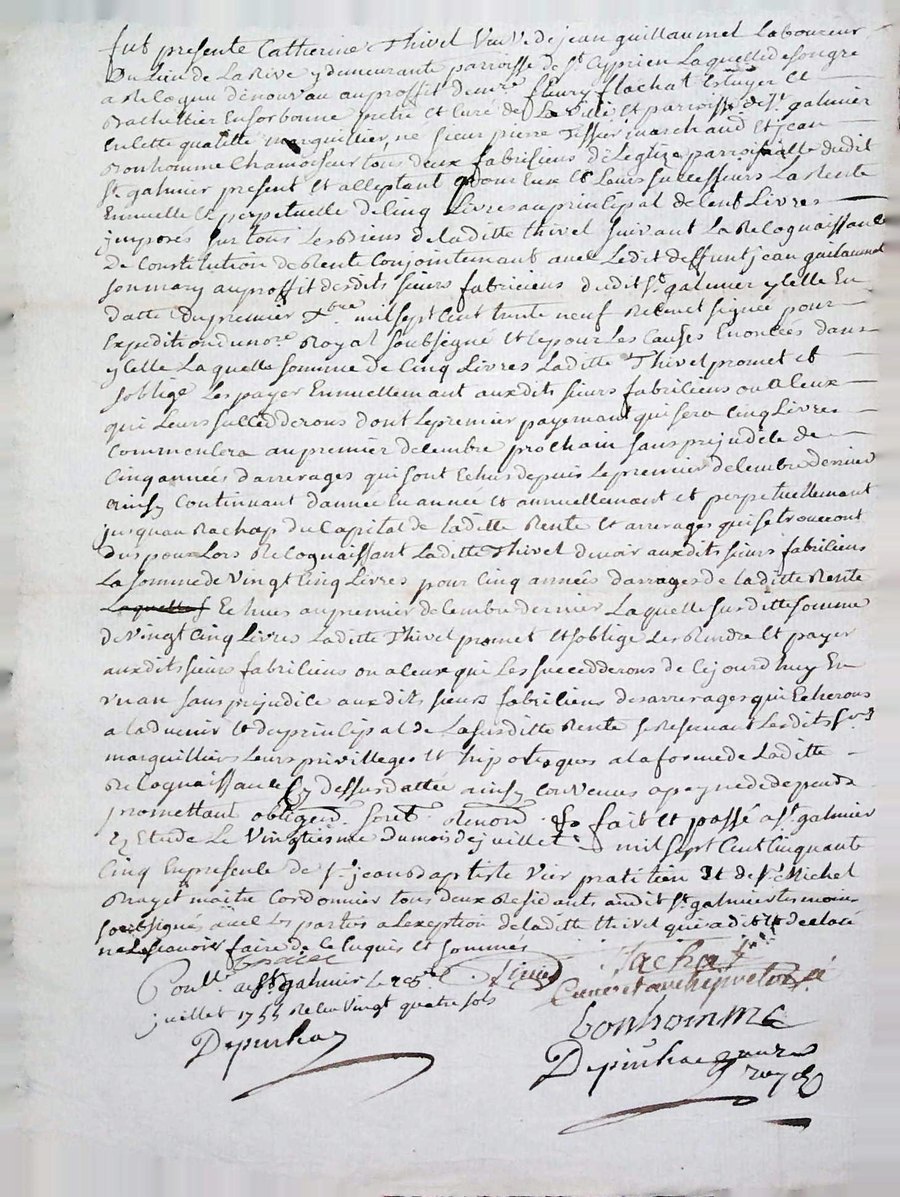 fut presente Catherine Thivel Veuve de jean guillaumel Laboureur
Du Lieu de La Rive y demeurante parroisse de St. Cyprien Laquelle de son gre
a Recognu de nouveau au proffit de mre fleury flachat Ecuyer Et
Bachellier En sorbonne pretre et Curé de La Ville Et parroisse de St galmier
En Cette qualitte marguillier, ne sieur pierre Tissier marchand Et jean
Bonhomme Chamoiseur tous deux fabriciens de leglize parroissialle dudit
St. galmier present Et acceptant pour Eux Et Leurs successeurs La Rente
Ennuelle Et perpetuelle de Cinq Livres au principal de Cent Livres
jmposés sur tous Les Biens de laditte thivel suivant La Recognaissance
de Constitution de Rente Conjointement avec Ledit deffunt jean guilaumel
son mary au proffit desdits sieurs fabriciens dudit St. galmier ycelle En
datte du premier Xbre mil sept Cent trente neuf Retenet signée pour
Expedition du nore. Royal soubsegné Et le pour Les Causes Enoncées dans
ycelle La quelle somme de Cinq Livres Laditte Thivel promet et
soblige Les payer Ennuellemant auxdits sieurs fabriciens ou a Ceux
qui Leurs succedderons dont Le premier payemant qui sera Cinq Livres
Commencera au premier decembre prochain sans prejudice de
Cinq années darrerages qui sont Echus depuis Le premier decembre dernier
Ainsy Continuant dannée En année Et annuellemant et perpetuellemant
jusquau Rachap du Capital de laditte Rente Et arrerages qui se trouveront
Dus pour Lors Recognaissant Laditte Thivel devoir auxdits sieurs fabriciens
La somme de Vingt Cinq Livres pour Cinq années darrages de laditte Rente
Laquelles Echues au premier decembre dernier Laquelle susditte somme
de Vingt Cinq Livres Laditte Thivel promet Et soblige Les Rendre Et payer
auxdits sieurs fabriciens ou a Ceux qui Les succedderons de Cejourdhuy En
vn an sans prejudice auxdits sieurs fabriciens desarrerages qui Echerons
a Ladvenir Et du principal de La susditte Rente se Reservant Lesdits Srs
marguilliers Leurs privilleges Et hipoteques a la forme de Laditte
Recognaissance Cy dessus dattée ainsy Convenus a peyne de depends
promettant obligent. soret. Renond. &a fait et passé a St. galmier
Ez Etude Le Vingtiesme du mois de juillet mil sept Cent Cinquante
Cinq En presence de Sr. jean Baptiste Vier pratitien Et de Sr. Michel
Rayet maitre Cordonnier tous deux Residants audit St. galmier temoins
soubsignés avec Les parties a Lexception de laditte thivel qui a dit Et declaré
ne Le scavoir faire de Ce Enquis Et sommés
flachat
Conllé. a St. galmier Le 28e
Curé
juillet 1755 Recu vingt quatre sols
bonhomme
Depuihac
Depuihac